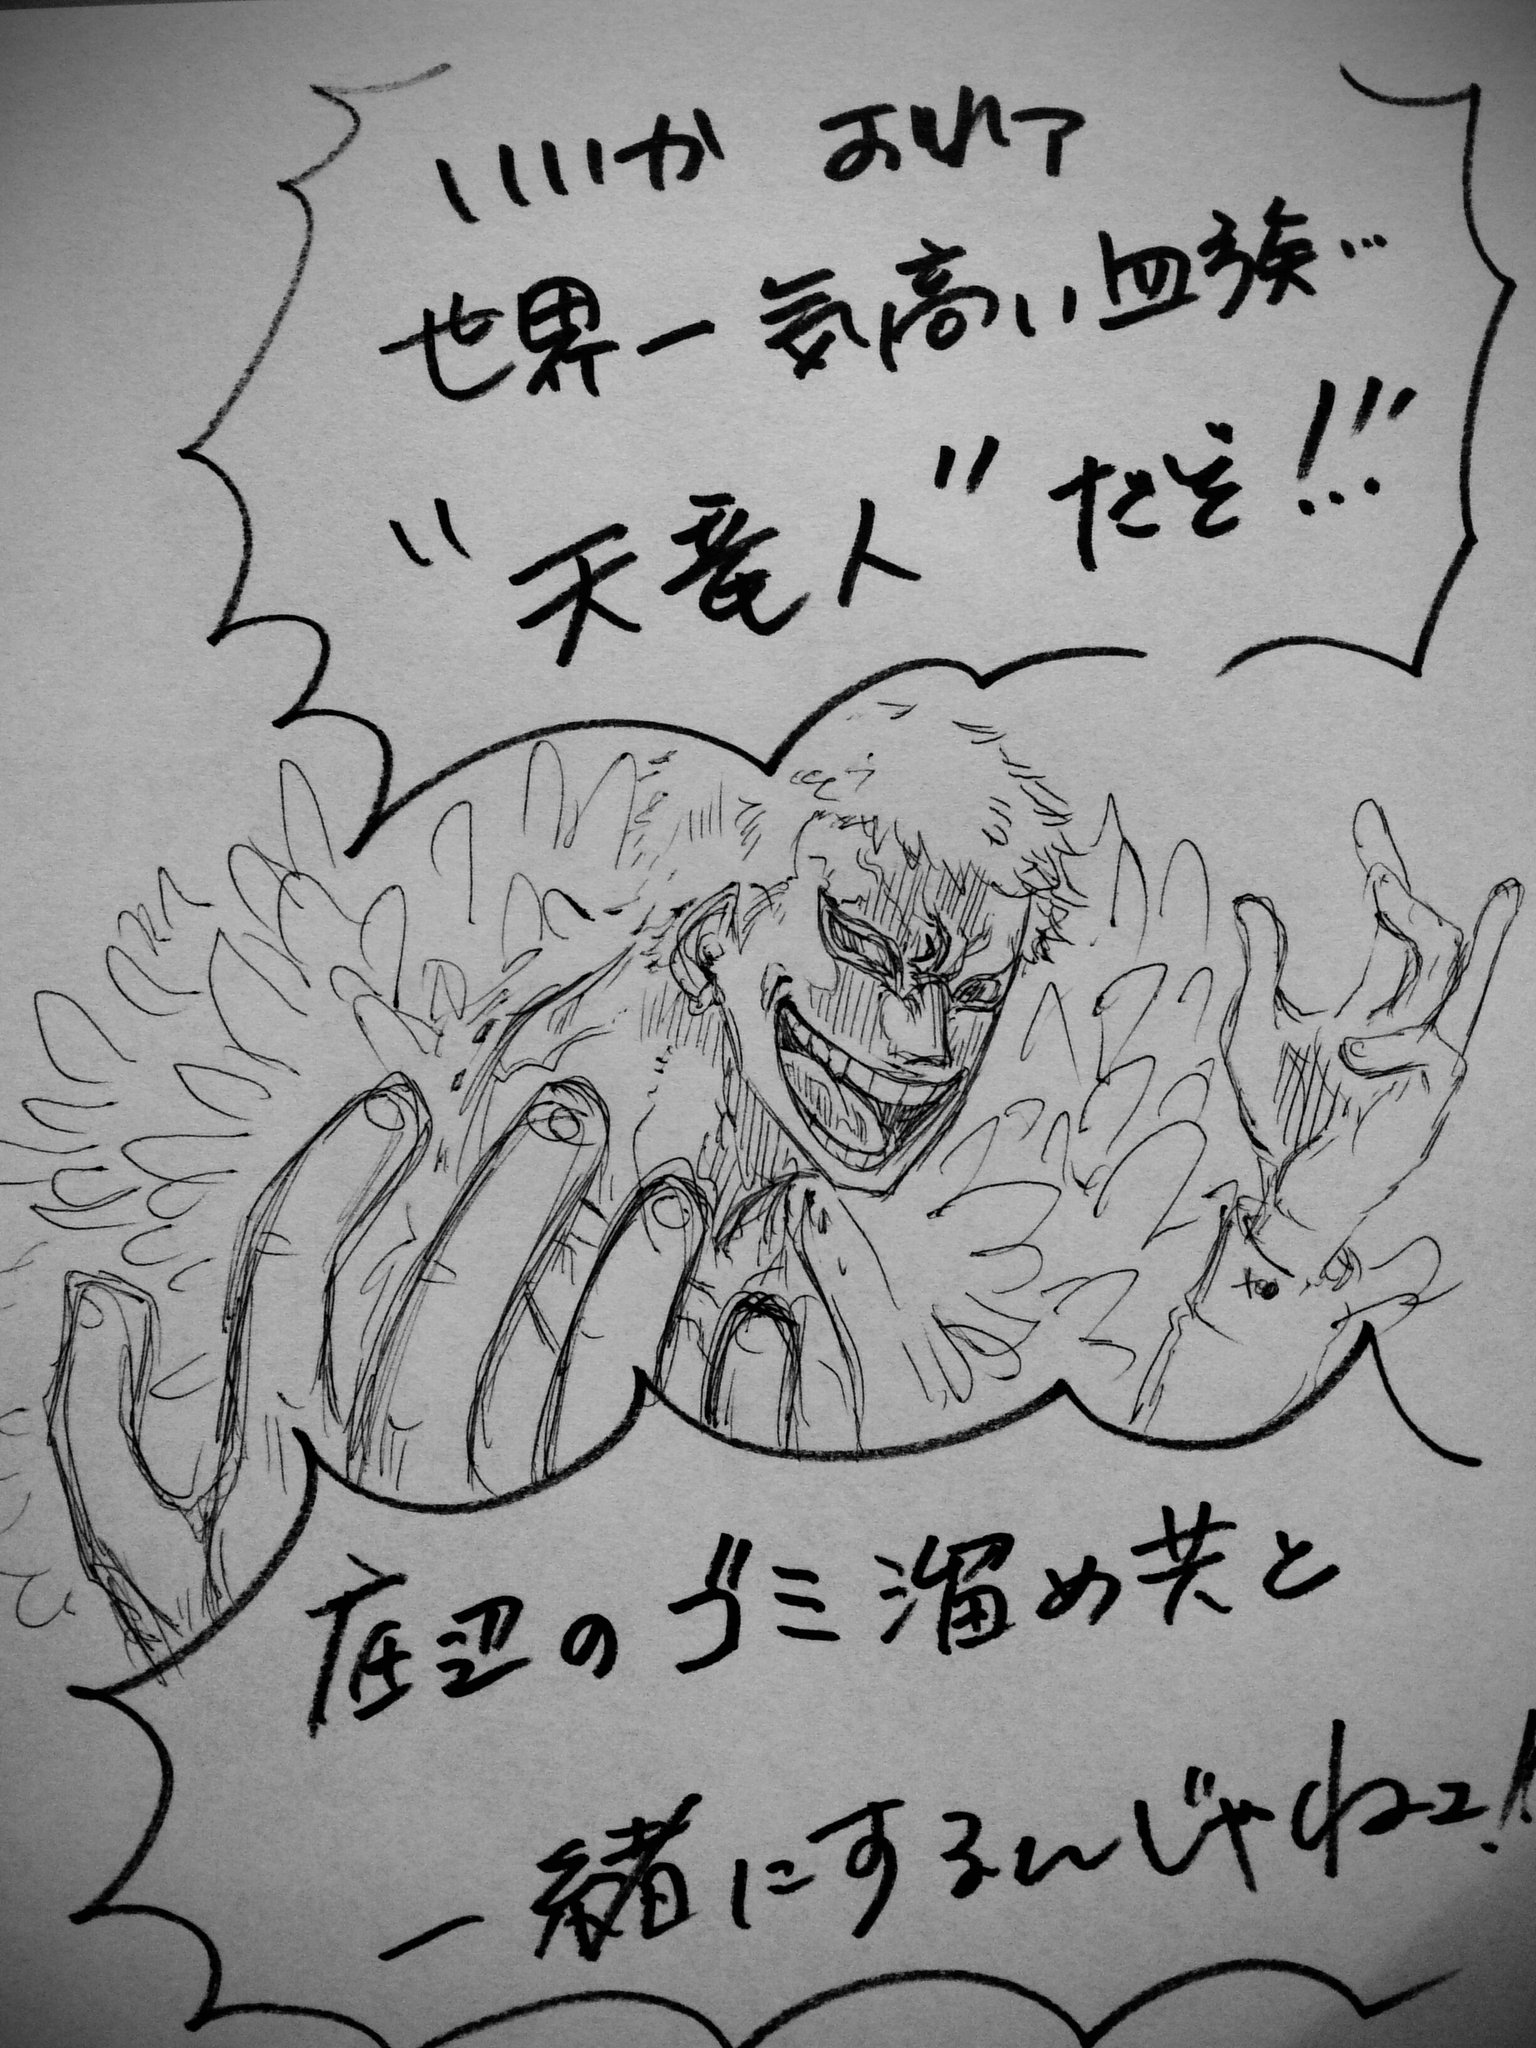 いいか おれァ
世界一気高い血族…
"天竜人"だぞ!!!
底辺のゴミ溜め共と
一緒にするんじゃねェ!